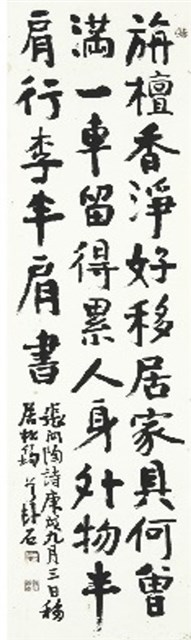 旃檀香淨好移居家具何曾
滿一車留得累人身外物半
肩行李半肩書
張問陶詩庚戌九月三日移
居石